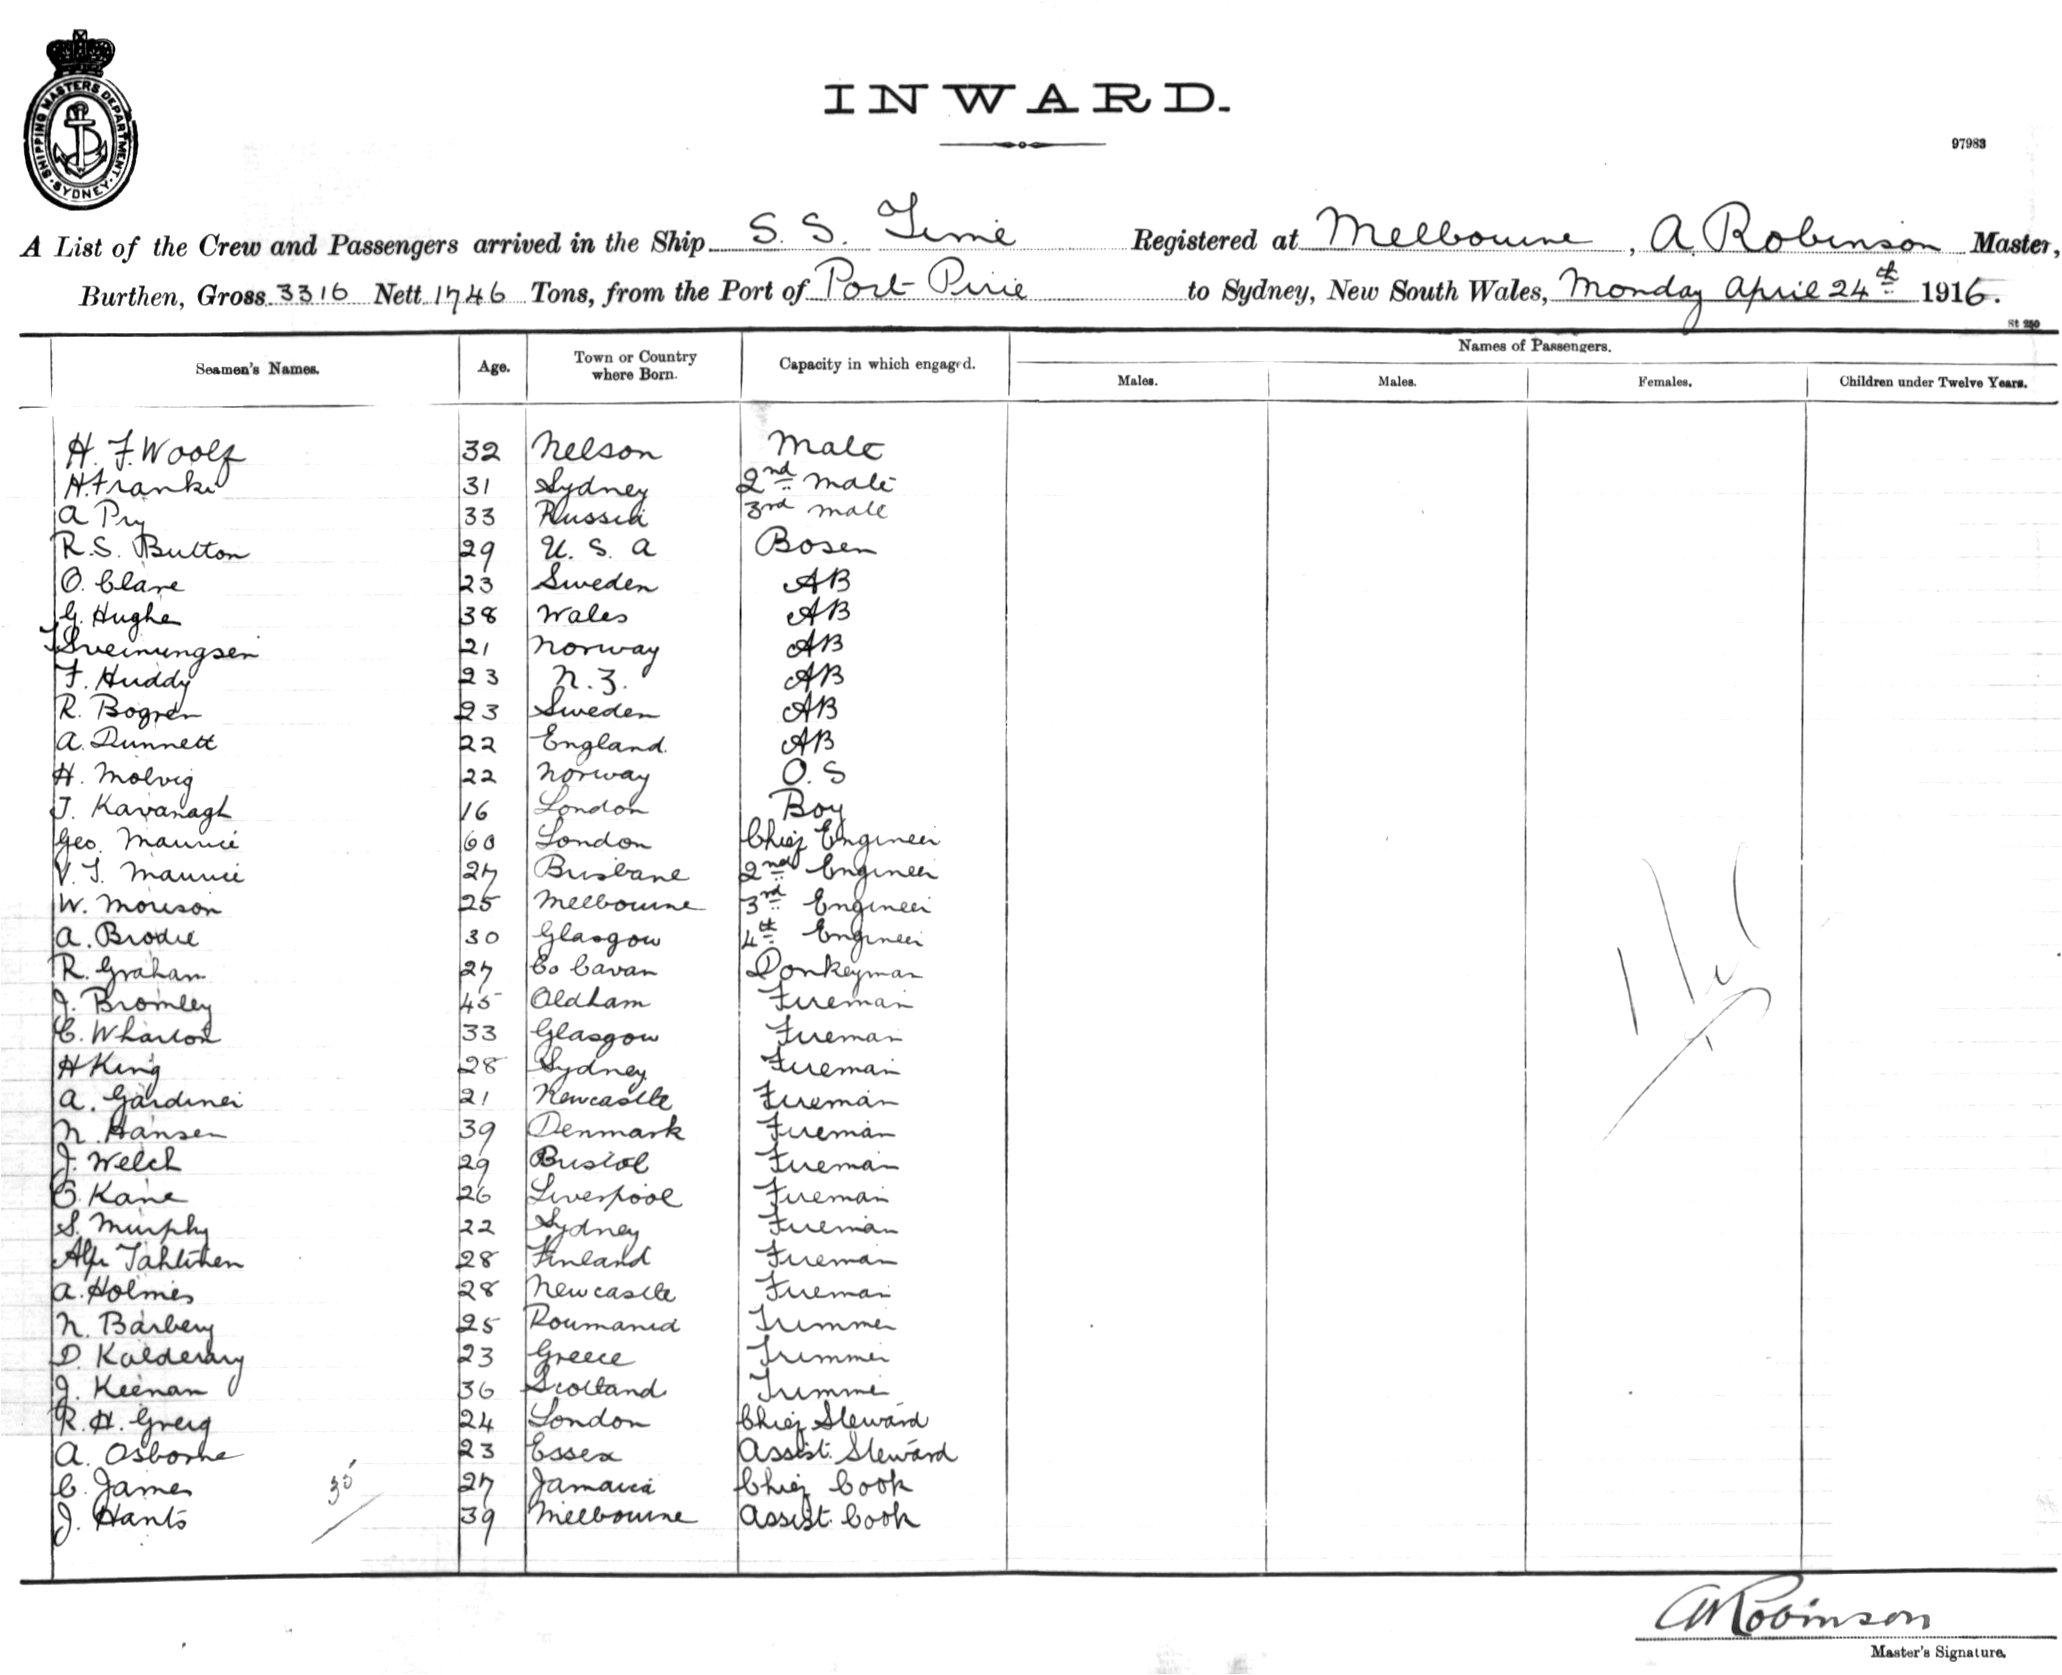 SHIPPING MASTERS DEPARTMENT
SYDNEY
INWARD.
97983
A List of the Crew and Passengers arrived in the Ship S. S. Time Registered at Melbourne, A Robinson Master,
Burthen, Gross 3316 Nett 1746 Tons, from the Port of Port Pirie to Sydney, New South Wales, Monday April 24th 1916.
St 250
Seamen's Names. Age. Town or Country where Born. Capacity in which engaged. Names of Passengers.
Males. Males. Females. Children under Twelve Years.
H. F. Woolf 32 Nelson Mate
H. Franke 31 Sydney 2nd Mate
A Pry 33 Russia 3rd Mate
R. S. Button 29 U. S. A Bosen
O. Clare 23 Sweden AB
G. Hughe 38 Wales AB
T Sveinungsen 21 Norway AB
F. Huddy 23 N. Z. AB
R. Bogren 23 Sweden AB
A. Dunnett 22 England. AB
H. Molvig 22 Norway O. S
J. Kavanagh 16 London Boy
Geo. Maurice 60 London Chief Engineer
V. J. Maurice 27 Brisbane 2nd Engineer
W. Morison 25 Melbourne 3rd Engineer
A. Brodie 30 Glasgow 4th Engineer
R. Graham 27 Co Cavan Donkeyman
J. Bromley 45 Oldham Fireman
C. Wharton 33 Glasgow Fireman
H King 28 Sydney Fireman
A. Gardiner 21 Newcastle Fireman
N. Hansen 39 Denmark Fireman
J. Welch 29 Bristol Fireman
C. Kane 26 Liverpool Fireman
S. Murphy 22 Sydney Fireman
Alfr Tahtinen 28 Finland Fireman
A. Holmes 28 Newcastle Fireman
N. Barbery 25 Roumania Trimmer
D. Kalderary 23 Greece Trimmer
J. Keenan 36 Scotland Trimmer
R. H. Greig 24 London Chief Steward
A. Osborne 23 Essex Assist. Steward
C. James 27 Jamaica Chief Cook
35
J. Hants 39 Melbourne Assist. Cook
A Robinson
Master's Signature.